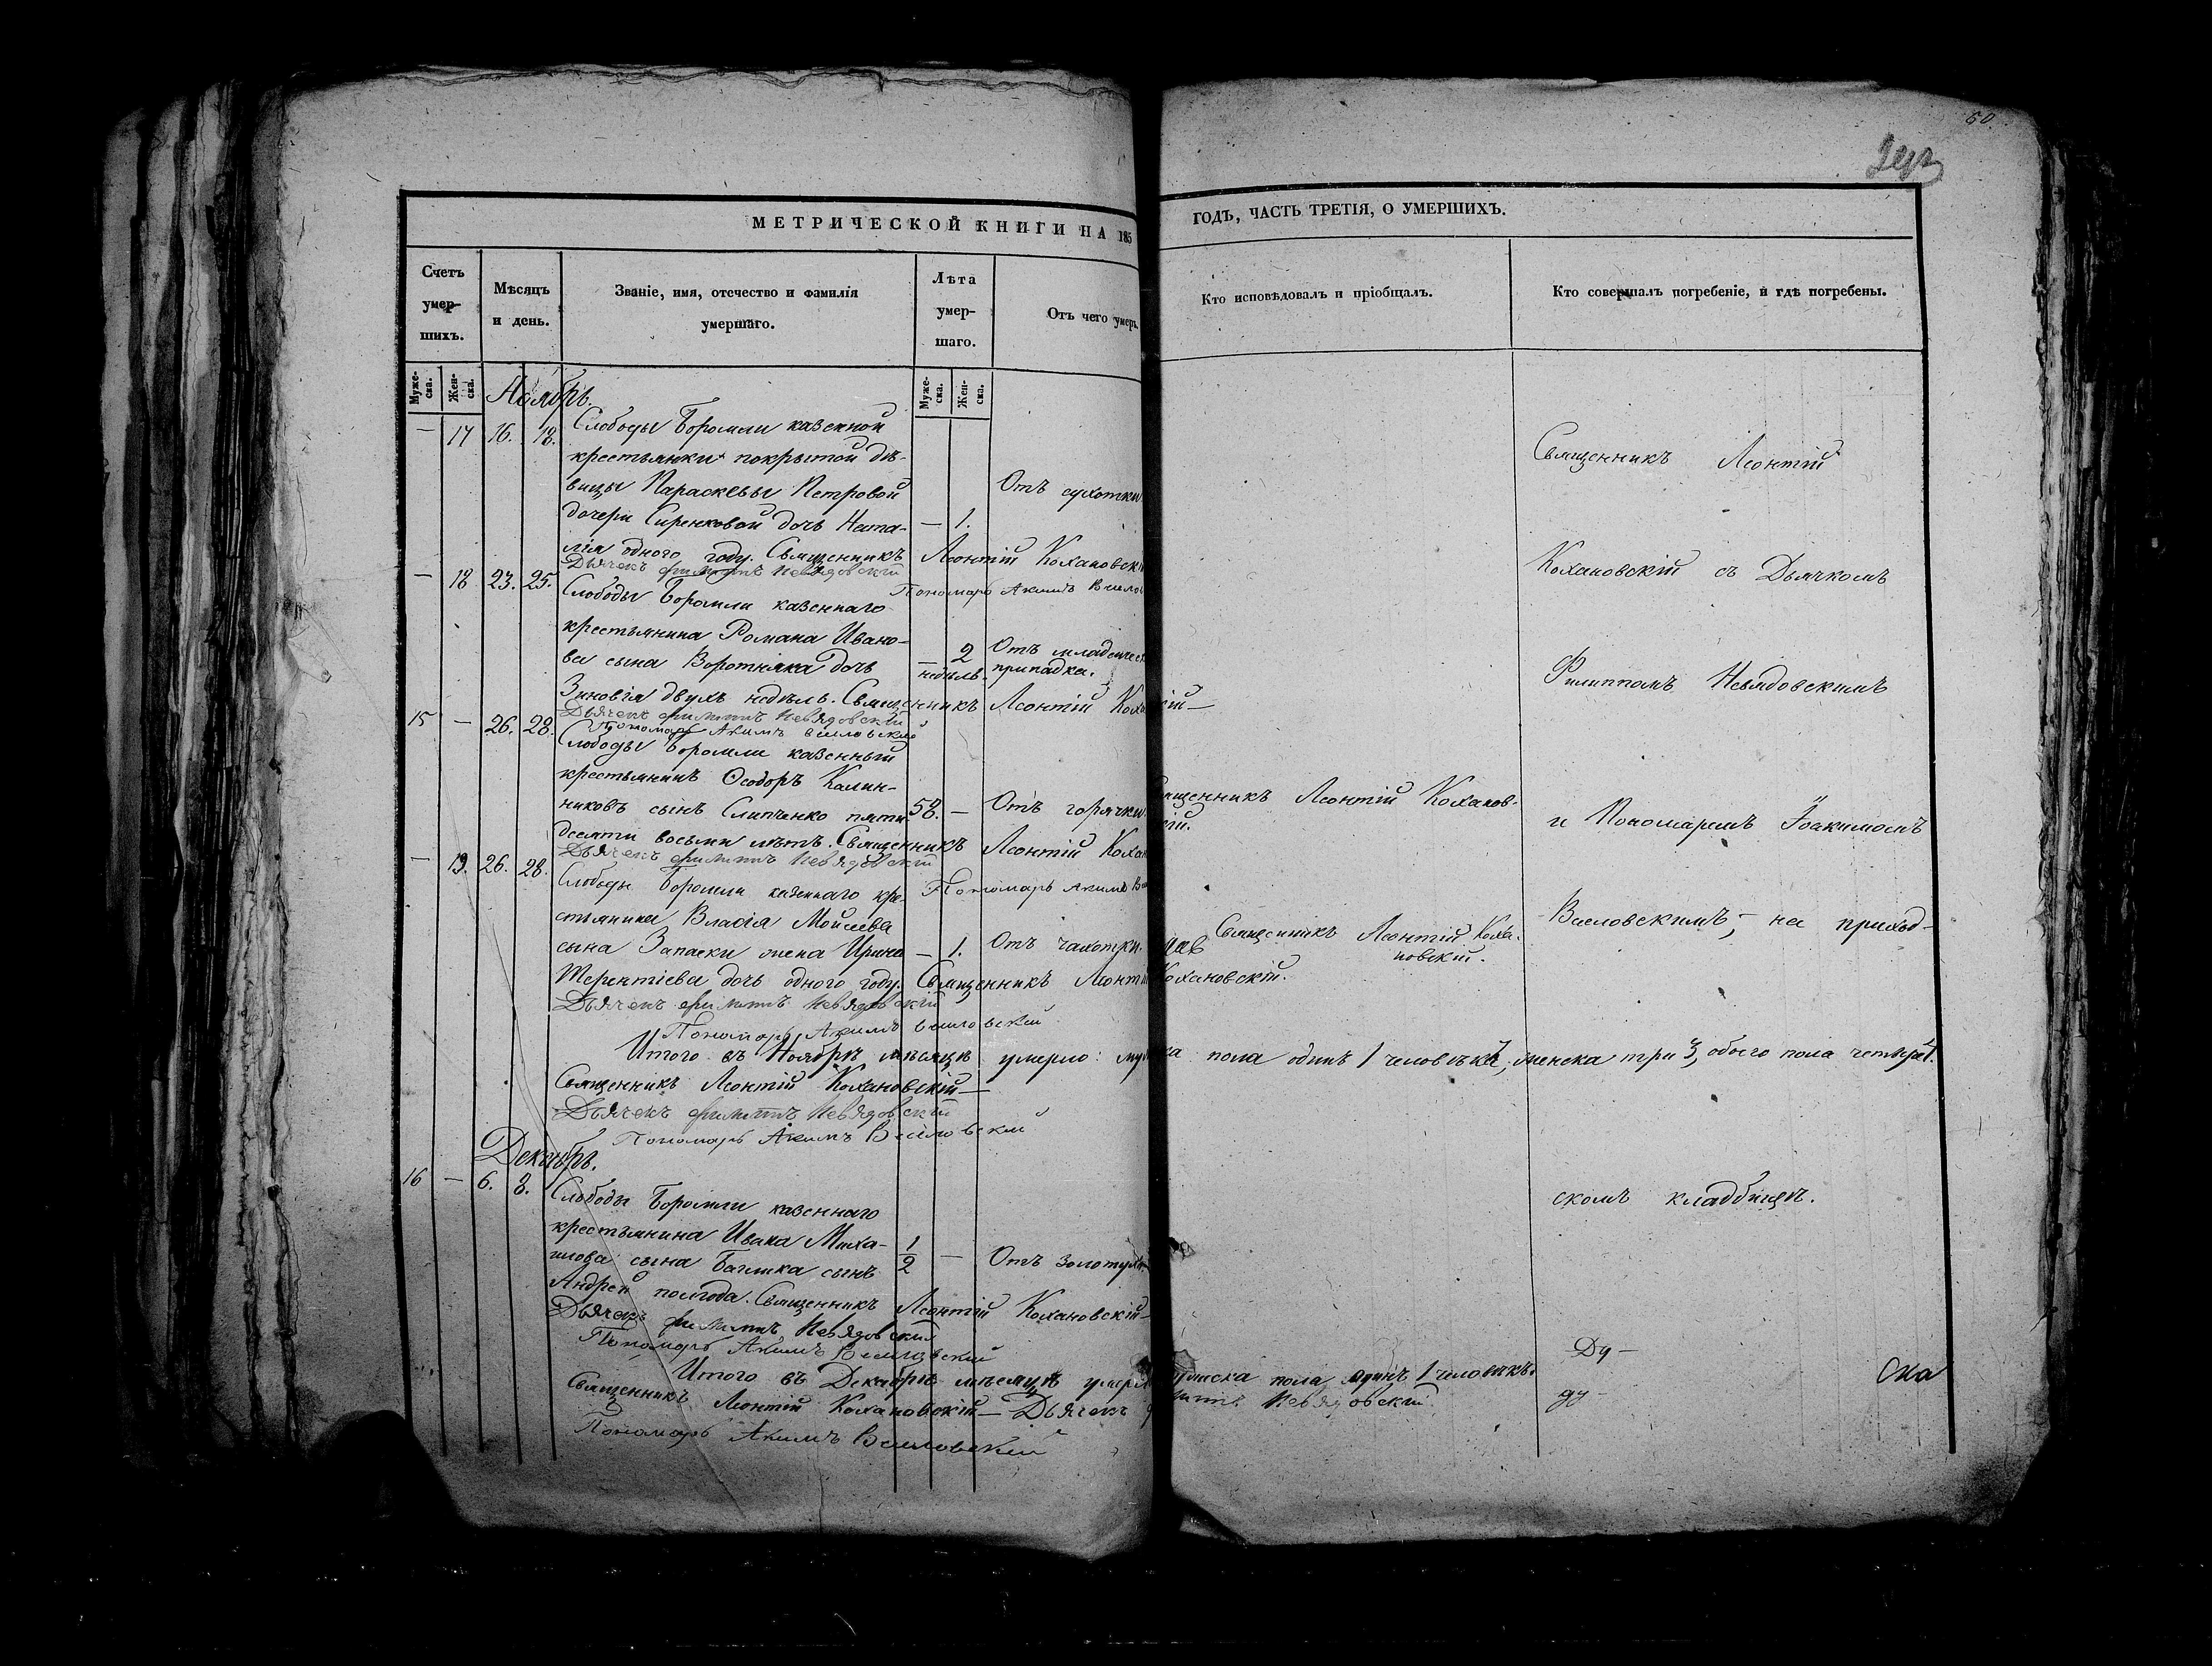 60
МЕТРИЧЕСКОЙ КНИГИ НА 185
ГОДЪ, ЧАСТЬ ТРЕТІЯ, О УМЕРШИХЪ.
Счетъ умер-шихъ.
Мѣсяцъ и день.
Званіе, имя, отечество и фамилія
умершаго.
Лѣта
умер-
шаго.
Отъ чего умеръ.
Кто исповѣдовалъ и пріобщалъ.
Кто совершалъ погребеніе, и гдѣ погребены.
Муже-ска.
Жен-ска.
Муже-ска.
Жен-ска.
Ноябрь.
— 17 16. 18. Слободы Боромли казенной
крестьянки покрытой дѣ-
вицы Параскевы Петровой Отъ сухотки
дочери Сиренковой дочь Ната- — 1.
лія одного году. Священникъ Леонтій Кохановскій
Дьячекъ Филиппъ Невядовскій
Пономарь Акимъ
— 18 23. 25. Слободы Боромли казеннаго
крестьянина Романа Ивано-
ва сына Воротняка дочь — 2 недѣль. Отъ младенчес припадка.
Зиновія двухъ недѣль. Священникъ Леонтій Кох
кій —
Дьячекъ Филиппъ Невядовскій
Пономарь Акимъ
15 — 26. 28. Слободы Боромли казенный
крестьянинъ Ѳеодоръ Калин-
никовъ сынъ Слипченко пяти 58. — Отъ горячки
десяти восьми лѣтъ. Священникъ Леонтій Кохан
щенникъ Леонтій Коханов-
скій.
Дьячекъ Филиппъ Невядовскій
Пономарь Акимъ
— 19. 26. 28. Слободы Боромли казеннаго кре-
стьянина Власія Мойсеева
сына Запаски жена Ирина — 1. Отъ чахотки.
Священникъ Леонтій Коха-
новскій.
Терентіева дочь одного году. Священникъ Леонтій Кохановскій.
Дьячекъ Филиппъ Невядовскій
Пономарь Акимъ
Итого въ Ноябрѣ мѣсяцѣ умерло: муж ка пола одинъ 1 человѣкъ, женска три 3, обоего пола четыре 4.
Священникъ Леонтій Кохановскій —
Дьячекъ Филиппъ Невядовскій
Пономарь Акимъ
Декабрь.
16 — 6. 8. Слободы Боромли казеннаго
крестьянина Ивана Миха-
илова сына Баглика сынъ 1/2 — Отъ золотухи
Андрей полгода. Священникъ Леонтій Кохановскій —
Дьячекъ Филиппъ Невядовскій
Пономарь Акимъ
Итого въ Декабрѣ мѣсяцѣ умерло мужеска пола одинъ 1 человѣкъ.
Священникъ Леонтій Кохановскій — Дьячекъ Филиппъ Невядовскій
Пономарь Акимъ
Священникъ Леонтій
Кохановскій съ Дьячкомъ
Филиппомъ Невядовскимъ
и Пономаремъ Іоакимомъ
на приход-
скомъ кладбищѣ.
Ду —
ду —
ска